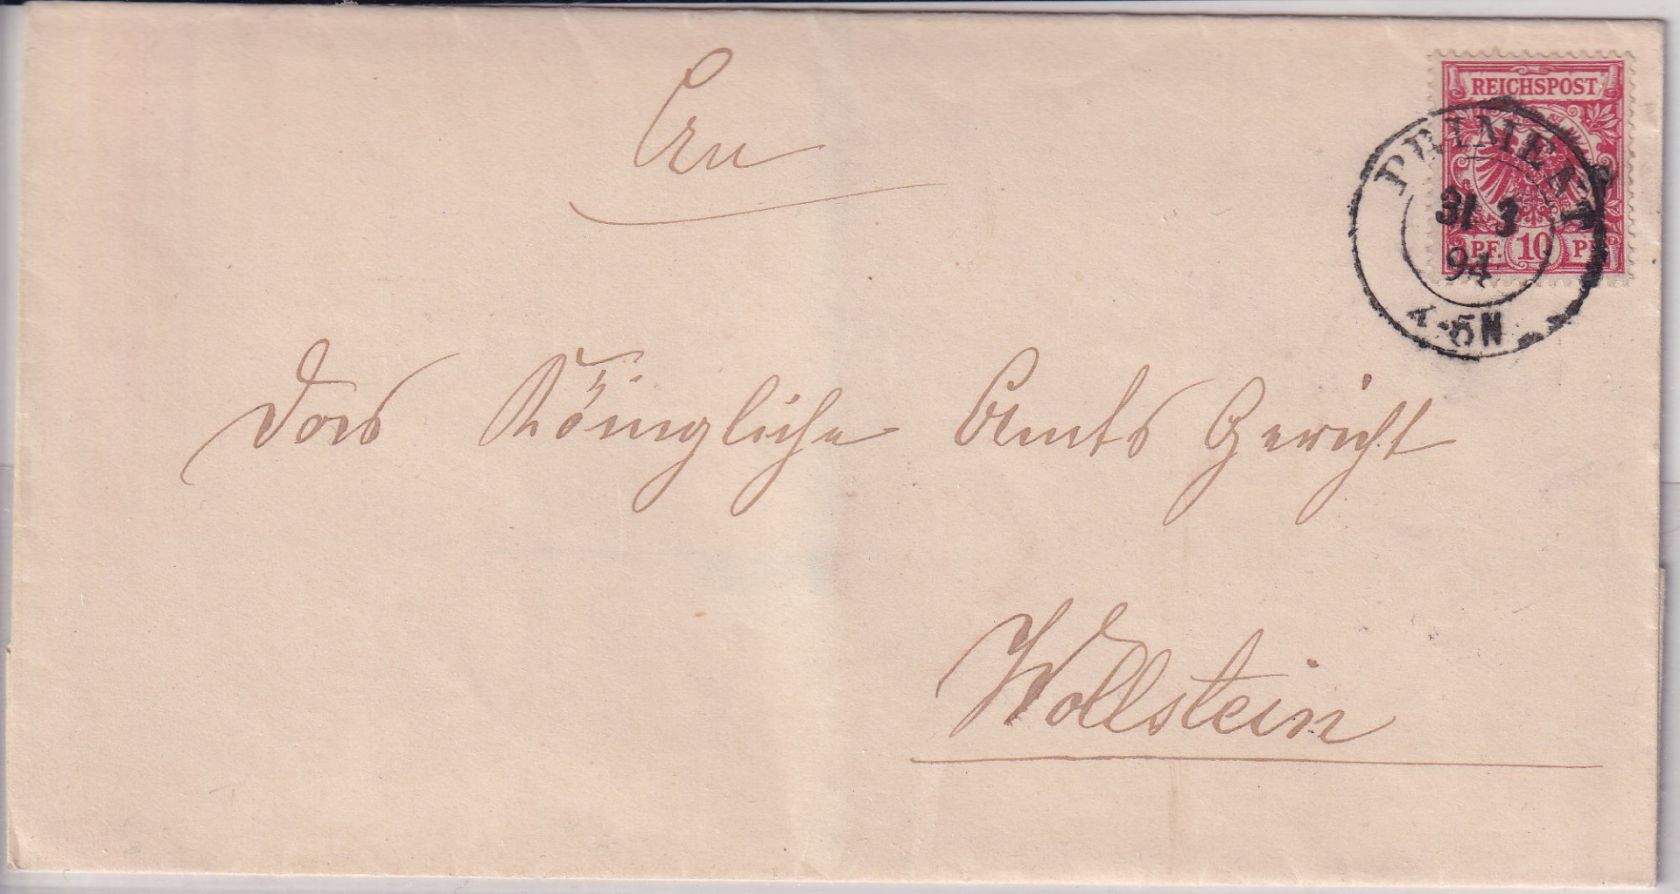 An
REICHSPOST
PRIMENT
31 3
94
4-5N
PF. 10 PF.
das Königliche Amts Gericht
Wollstein